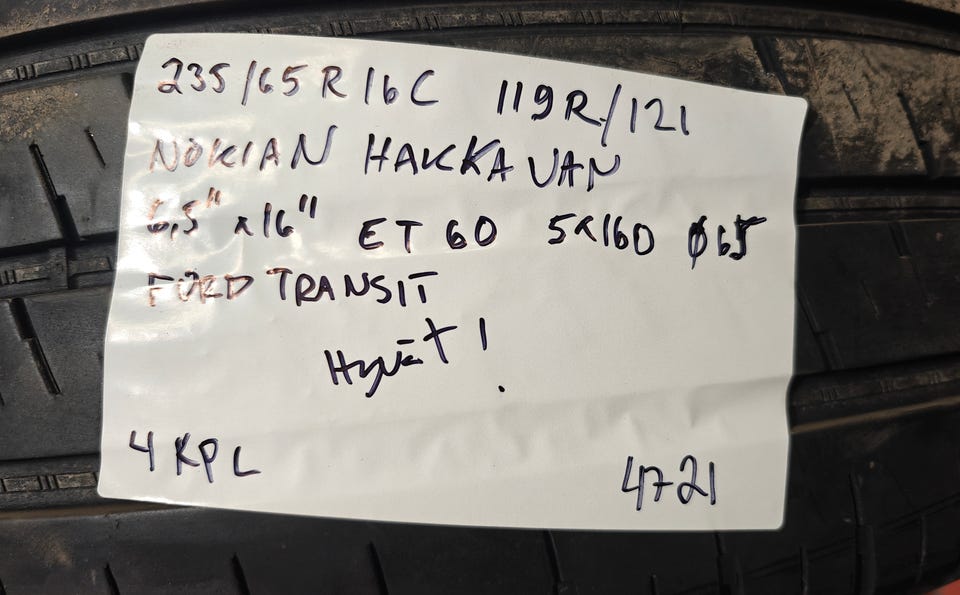 235/65 R 16 C 119R/121
NOKIAN HAKKA VAN
6,5" x 16" ET 60 5x160 Ø65
FORD TRANSIT
Hyvät!
4 KPL 4721